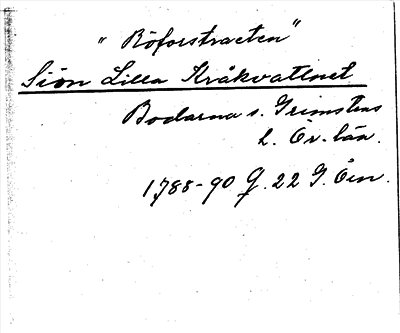 "Röforstracten"
Sjön Lilla Kråkvattnet
Bodarna s. Grimstens
h. Ör. län.
1788-90 Q. 22 G. Ön.